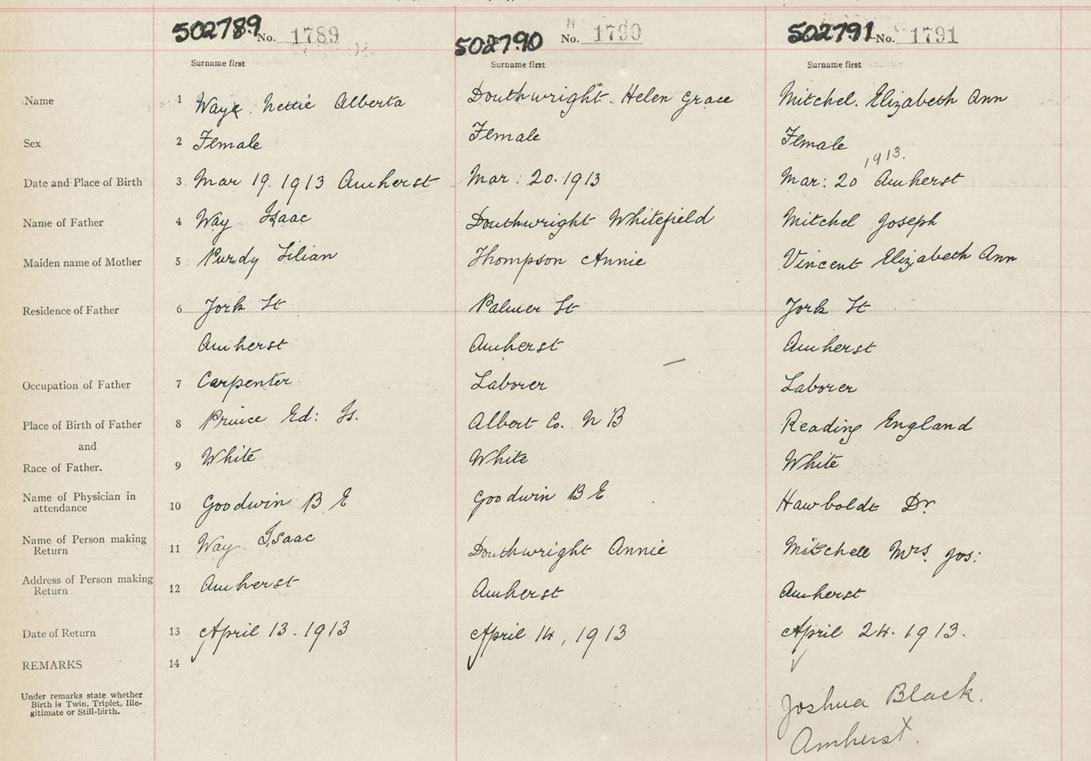 502789 No. 1789 502790 No. 1790 502791 No. 1791
Surname first Surname first Surname first
Name 1 Way Nettie Alberta Douthwright. Helen Grace Mitchel. Elizabeth Ann
Sex 2 Female Female Female
1913.
Date and Place of Birth 3 Mar 19. 1913 Amherst Mar: 20. 1913 Mar: 20 Amherst
Name of Father 4 Way Isaac Douthwright Whitefield Mitchel Joseph
Maiden name of Mother 5 Purdy Lilian Thompson Annie Vincent Elizabeth Ann
Residence of Father 6 York St Palmer St York St
Amherst Amherst Amherst
Occupation of Father 7 Carpenter Laborer Laborer
Place of Birth of Father 8 Prince Ed: Is. Albert Co. N B Reading England
and
Race of Father. 9 White White White
Name of Physician in
attendance 10 Goodwin B E Goodwin B E Hawboldt Dr
Name of Person making
Return 11 Way Isaac Douthwright Annie Mitchell Mrs. Jos:
Address of Person making
Return 12 Amherst Amherst Amherst
Date of Return 13 April 13. 1913 April 14, 1913 April 24. 1913.
REMARKS 14
Under remarks state whether
Birth is Twin, Triplet, Ille-
gitimate or Still-birth.
Joshua Black.
Amherst.